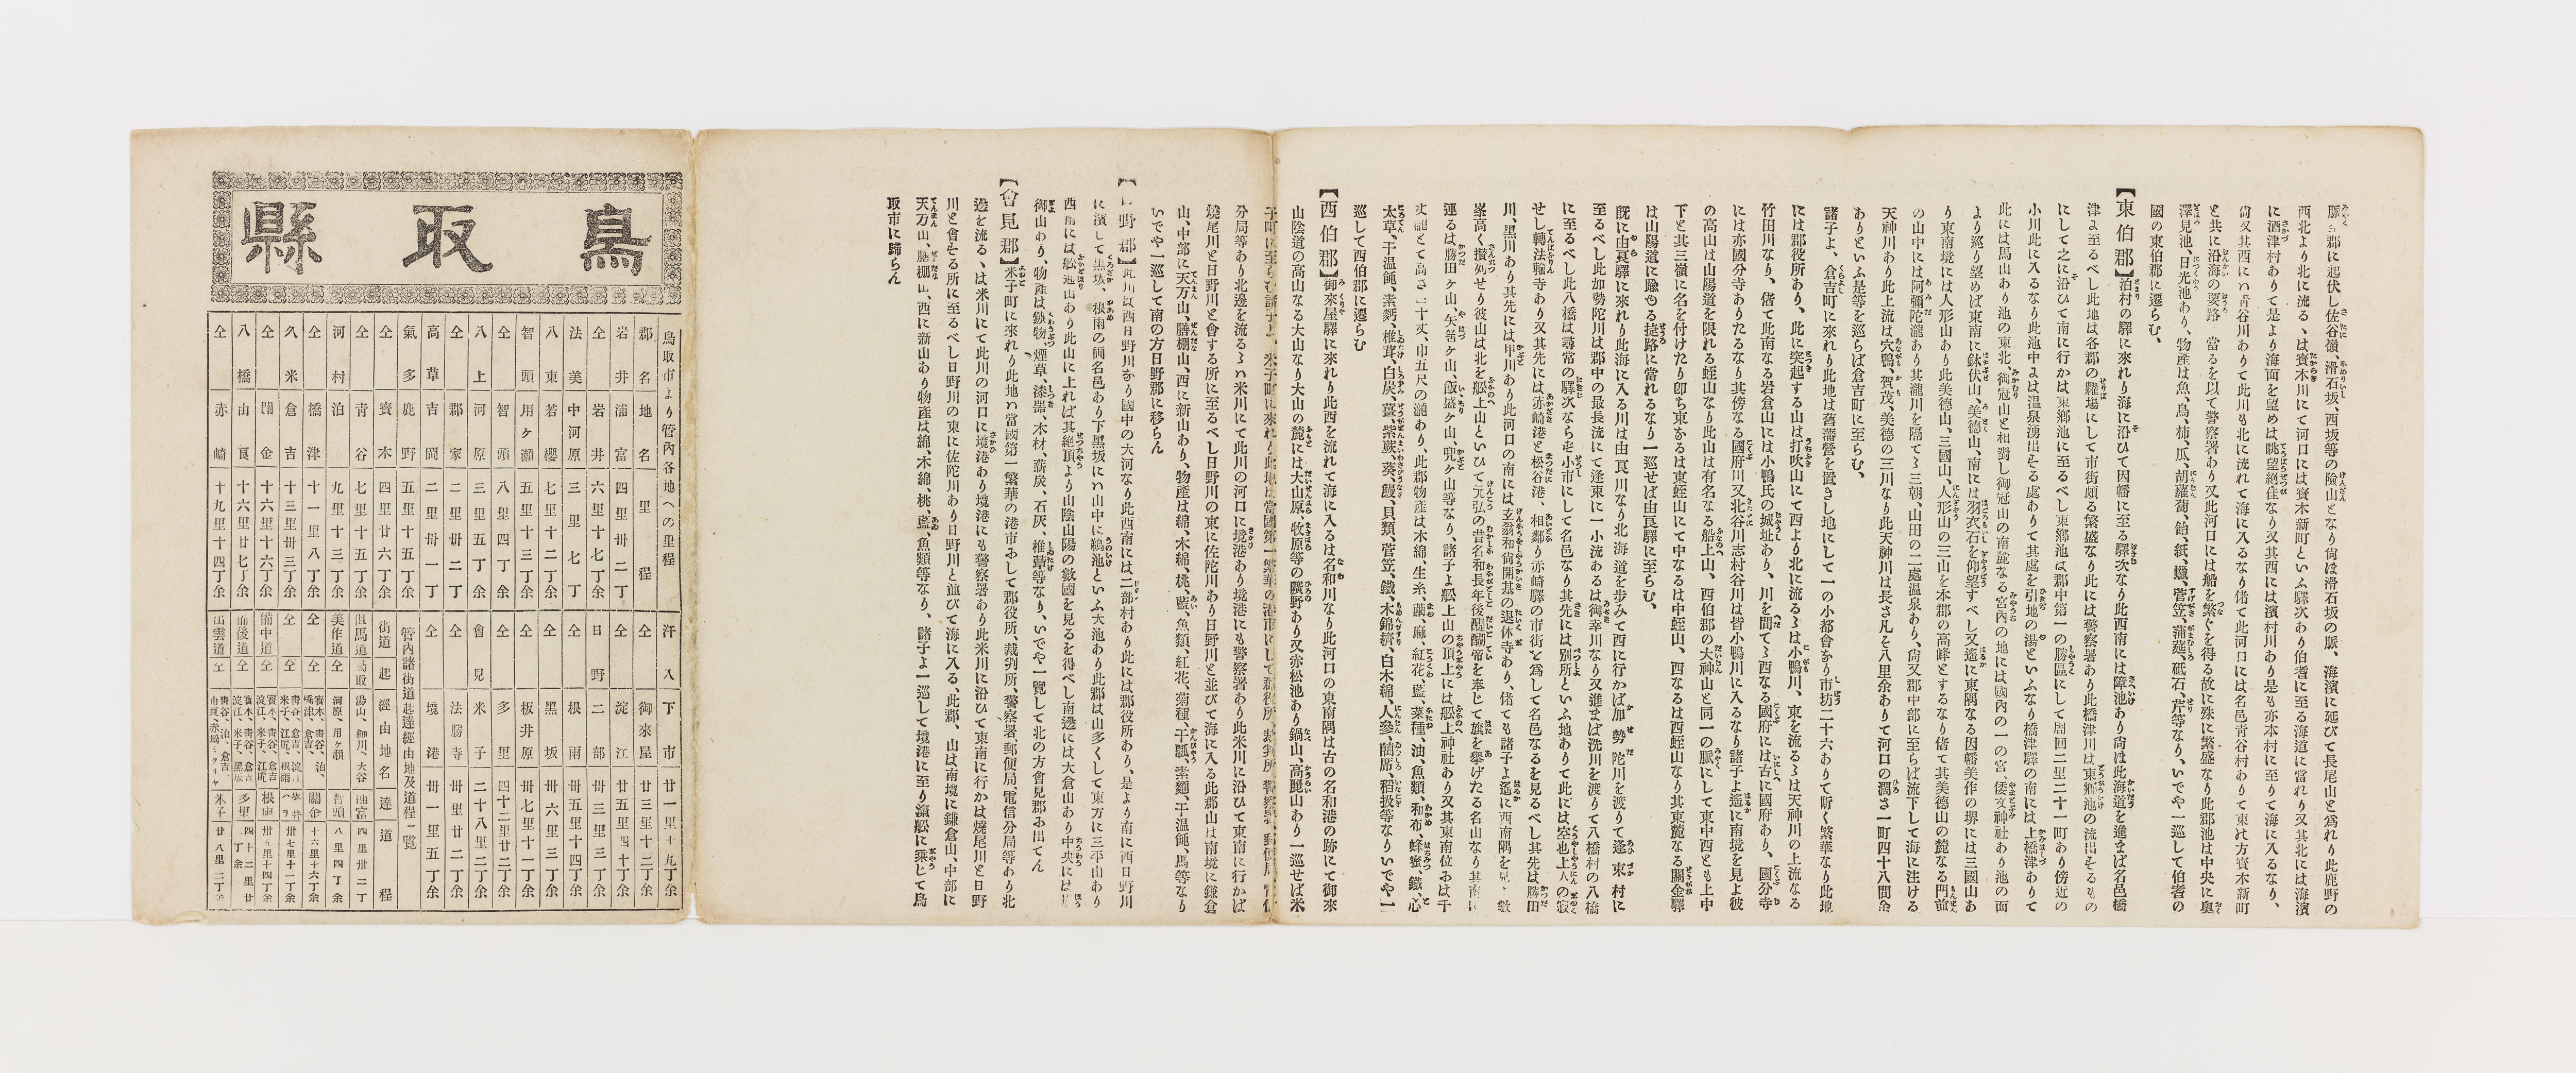 脈郡に起伏し佐谷嶺、滑石坂、西坂等の險山となり尙は滑石坂の脈、海濱に延びて長尾山と爲れり此鹿野の
西北より北に流るゝは寳木川にて河口には寳木新町といふ驛次あり伯耆に至る海道に當れり又其北には海濱
に酒津村ありて是より海面を望めは眺望絕佳なり又其西には濱村川あり是も亦本村に至りて海に入るなり、
尙又其西に靑谷川ありて此川も北に流れて海に入るなり偖て此河口には名邑靑谷村ありて東は方寳木新町
と共に沿海の要路 當るを以て警察署あり又此河口には船を繫ぐを得る故に殊に繁盛なり此郡池は中央に奥
澤見池、日光池あり、物產は魚、鳥、柿、瓜、胡蘿蔔、飴、紙、蠟、菅笠、蒲莚、砥石、芹等なり、いでや一巡して伯耆の
國の東伯郡に遷らむ、
【東伯郡】泊村の驛に來れり海に沿ひて因幡に至る驛次なり此西南には障池あり尙は此海道を進まば名邑橋
津よ至るべし此地は各郡の糶場にして市街頗る繁盛なり此には警察署あり此橋津川は東鄕池の流出そるもの
にして之に沿ひて南に行かは東鄕池に至るべし東鄕池は郡中第一の勝區にして周回二里二十一町あり傍近の
小川此に入るなり此池中よは温泉湧出そる處ありて其處を引地の湯といふなり橋津驛の南には上橋津ありて
此には馬山あり池の東北、御冠山と相對し御冠山の南麓なる宮內の地には國內の一の宮、倭文神社あり池の面
より巡り望めば東南に鉢伏山、美德山、南には羽衣石を仰望すべし又遙に東隅なる因幡美作の堺には三國山お
り東南境には人形山あり此美德山、三國山、人形山の三山を本郡の高峰とするなり偖て其美德山の麓なる門前
の山中には阿彌陀瀧あり其瀧川を隔てゝ三朝、山田の二處温泉あり、尙又郡中部に至らば流下して海に注ける
天神川あり此上流は穴鴨、賀茂、美德の三川なり此天神川は長さ凡そ八里余ありて河口の濶さ一町四十八間余
ありといふ是等を巡らば倉吉町に至らむ、
諸子よ、倉吉町に來れり此地は舊藩營を置きし地にして一の小都會なり市坊二十六ありて斯く繁華なり此地
には郡役所あり、此に突起する山は打吹山にて西より北に流るゝは小鴨川、東を流るゝは天神川の上流なる
竹田川なり、偖て此南なる岩倉山には小鴨氏の城址あり、川を間てゝ西なる國府には古に國府あり、國分寺
には亦國分寺ありたるなり其傍なる國府川又北谷川志村谷川は皆小鴨川に入るなり諸子よ遙に南境を見よ彼
の高山は山陽道を限れる蛭山なり此山は有名なる船上山、西伯郡の大神山と同一の脈にして東中西とも上中
下と其三嶺に名を付けたり卽ち東なるは東蛭山にて中なるは中蛭山、西なるは西蛭山なり其東麓なる關金驛
は山陽道に踰る捷路に當れるなり一巡せば由良驛に至らむ、
既に由良驛に來れり此海に入る川は由良川なり北海道を步みて西に行かば加勢陀川を渡りて逢東村に
至るべし此加勢陀川は郡中の最長流にて逢束に一小流あるは御幸川なり又進まば洗川を渡りて八橋村の八橋
に至るべし此八橋は尋常の驛次ならそ小市にして名邑なり其先には別所といふ地ありて此には空也上人の寂
せし轉法輪寺あり又其先には赤崎港と松谷港、相鄰り赤崎驛の市街と爲して名邑なるを見るべし其先は勝田
川、黑川あり其先には甲川あり此河口の南には玄翁和尙開基の退休寺あり、偖ても諸子よ遙に西南隅を見、數
峯高く攢列せり彼山は北を舩上山といひて元弘の昔名和長年後醍醐帝を奉じて旗を擧げたる名山なり其南に
連るは勝田ヶ山、矢筈ヶ山、飯盛ヶ山、兜ヶ山等なり、諸子よ舩上山の頂上には舩上神社あり又其東南位おは千
丈瀧とて高さ二十丈、巾五尺の瀧あり、此郡物產は木綿、生糸、繭、麻、紅花、藍、菜種、油、魚類、和布、蜂蜜、鐵、心
太草、干温飩、素麪、椎茸、白炭、薑、紫蕨、葵、鰻、貝類、菅笠、鐵、木錦縞、白木綿、人參、蔺席、稻扱等なりいでや一
巡して西伯郡に遷らむ
【西伯郡】御來屋驛に來れり此西を流れて海に入るは名和川なり此河口の東南隅は古の名和港の跡にて御來
山陰道の高山なる大山なり大山の麓には大山原、牧原等の曠野あり又赤松池あり鍋山、高麗山あり一巡せば米
子町に至らむ諸子よ、米子町に來れり此地は當國第一繁華の港市にして郡役所、裁判所、警察署、郵便局、電信
分局等あり北邊を流るゝは米川にて此川の河口に境港あり境港にも警察署あり此米川に沿ひて東南に行かば
燒尾川と日野川と會する所に至るべし日野川の東に佐陀川あり日野川と並びて海に入る此郡山は南境に鎌倉
山、中部に天万山、膳棚山、西に新山あり、物產は綿、木綿、桃、藍、魚類、紅花、菊種、干瓢、素麵、干温飩、馬等なり
いでや一巡して南の方日野郡に移らん
【日野郡】此川は西日野川をり國中の大河なり此西南には二部村あり此には郡役所あり、是より南に西日野川
に濱して黑坂、根雨の兩名邑あり下黑坂に山中に鵜池といふ大池あり此郡は山多くして東方に三平山あり
西南には舩通山あり此山に上れば其絕頂より山陰山陽の數國を見るを得べし南邊には大倉山あり中央には
御山あり、物產は鐵物、煙草、漆器、木材、薪炭、石灰、椎蕈等なり、いでや一覽して北の方會見郡お出てん
【會見郡】米子町に來れり此地は當國第一繁華の港市おして郡役所、裁判所、警察署、郵便局、電信分局等あり北
邊を流るゝは米川にて此川の河口に境港あり境港にも警察署あり此米川に沿ひて東南に行かは燒尾川と日野
川と會そる所に至るべし日野川の東に佐陀川あり日野川と並びて海に入る、此郡、山は南境に鎌倉山、中部に
天万山、膳棚山、西に新山あり物產は綿、木綿、桃、藍、魚類等なり、諸子よ一巡して境港に至り瀛舩に乘じて鳥
取市に歸らん
鳥取縣
鳥取市より管內各地への里程
郡名 地名 里程
岩井 浦富 四里卅二丁
仝 岩井 六里十七丁余
法美 中河原 三里七丁
八東 若櫻 七里十二丁余
智頭 用ヶ瀨 五里十三丁余
仝 智頭 八里四丁余
八上 河原 三里五丁余
仝 郡家 二里卅二丁
高草 吉岡 二里卅一丁
氣多 鹿野 五里十五丁余
仝 寳木 四里廿六丁余
仝 靑谷 七里十五丁余
河村 泊 九里十三丁余
仝 橋津 十一里八丁余
久米 倉吉 十三里卅三丁余
仝 關金 十六里十六丁余
八橋 由良 十六里廿七丁余
仝 赤崎 十九里十四丁余
汗入 下市 廿一里十九丁余
仝 御來屋 廿三里十二丁余
仝 淀江 廿五里四十丁余
日野 二部 卅三里三丁余
仝 根雨 卅五里十四丁余
仝 黑坂 卅六里三丁余
仝 板井原 卅七里十一丁余
仝 多里 四十二里廿二丁余
會見 米子 二十八里二丁余
仝 法勝寺 卅里廿二丁余
仝 境港 卅一里五丁余
管內諸街道起達經由地及道程一覽
街道 起 經由地名 達 道程
但馬道 鳥取 湯山、細川、大谷 浦富 四里卅二丁
美作道 仝 河原、用ヶ瀨 智頭 八里四丁余
仝 仝 寳木、靑谷、泊、橋津、倉吉 關金 十六里十六丁余
仝 仝 靑谷、倉吉、淀江、米子、江尾、根雨 板井ハラ 卅七里十一丁余
備中道 仝 寳木、靑谷、倉吉、淀江、米子、江尾 根雨 卅五里十四丁余
備後道 仝 寳木、靑谷、倉吉、淀江、米子、黑坂 多里 四十二里廿二丁余
出雲道 仝 靑谷、泊、倉吉、由良、赤崎、ミクリヤ 米子 廿八里二丁余